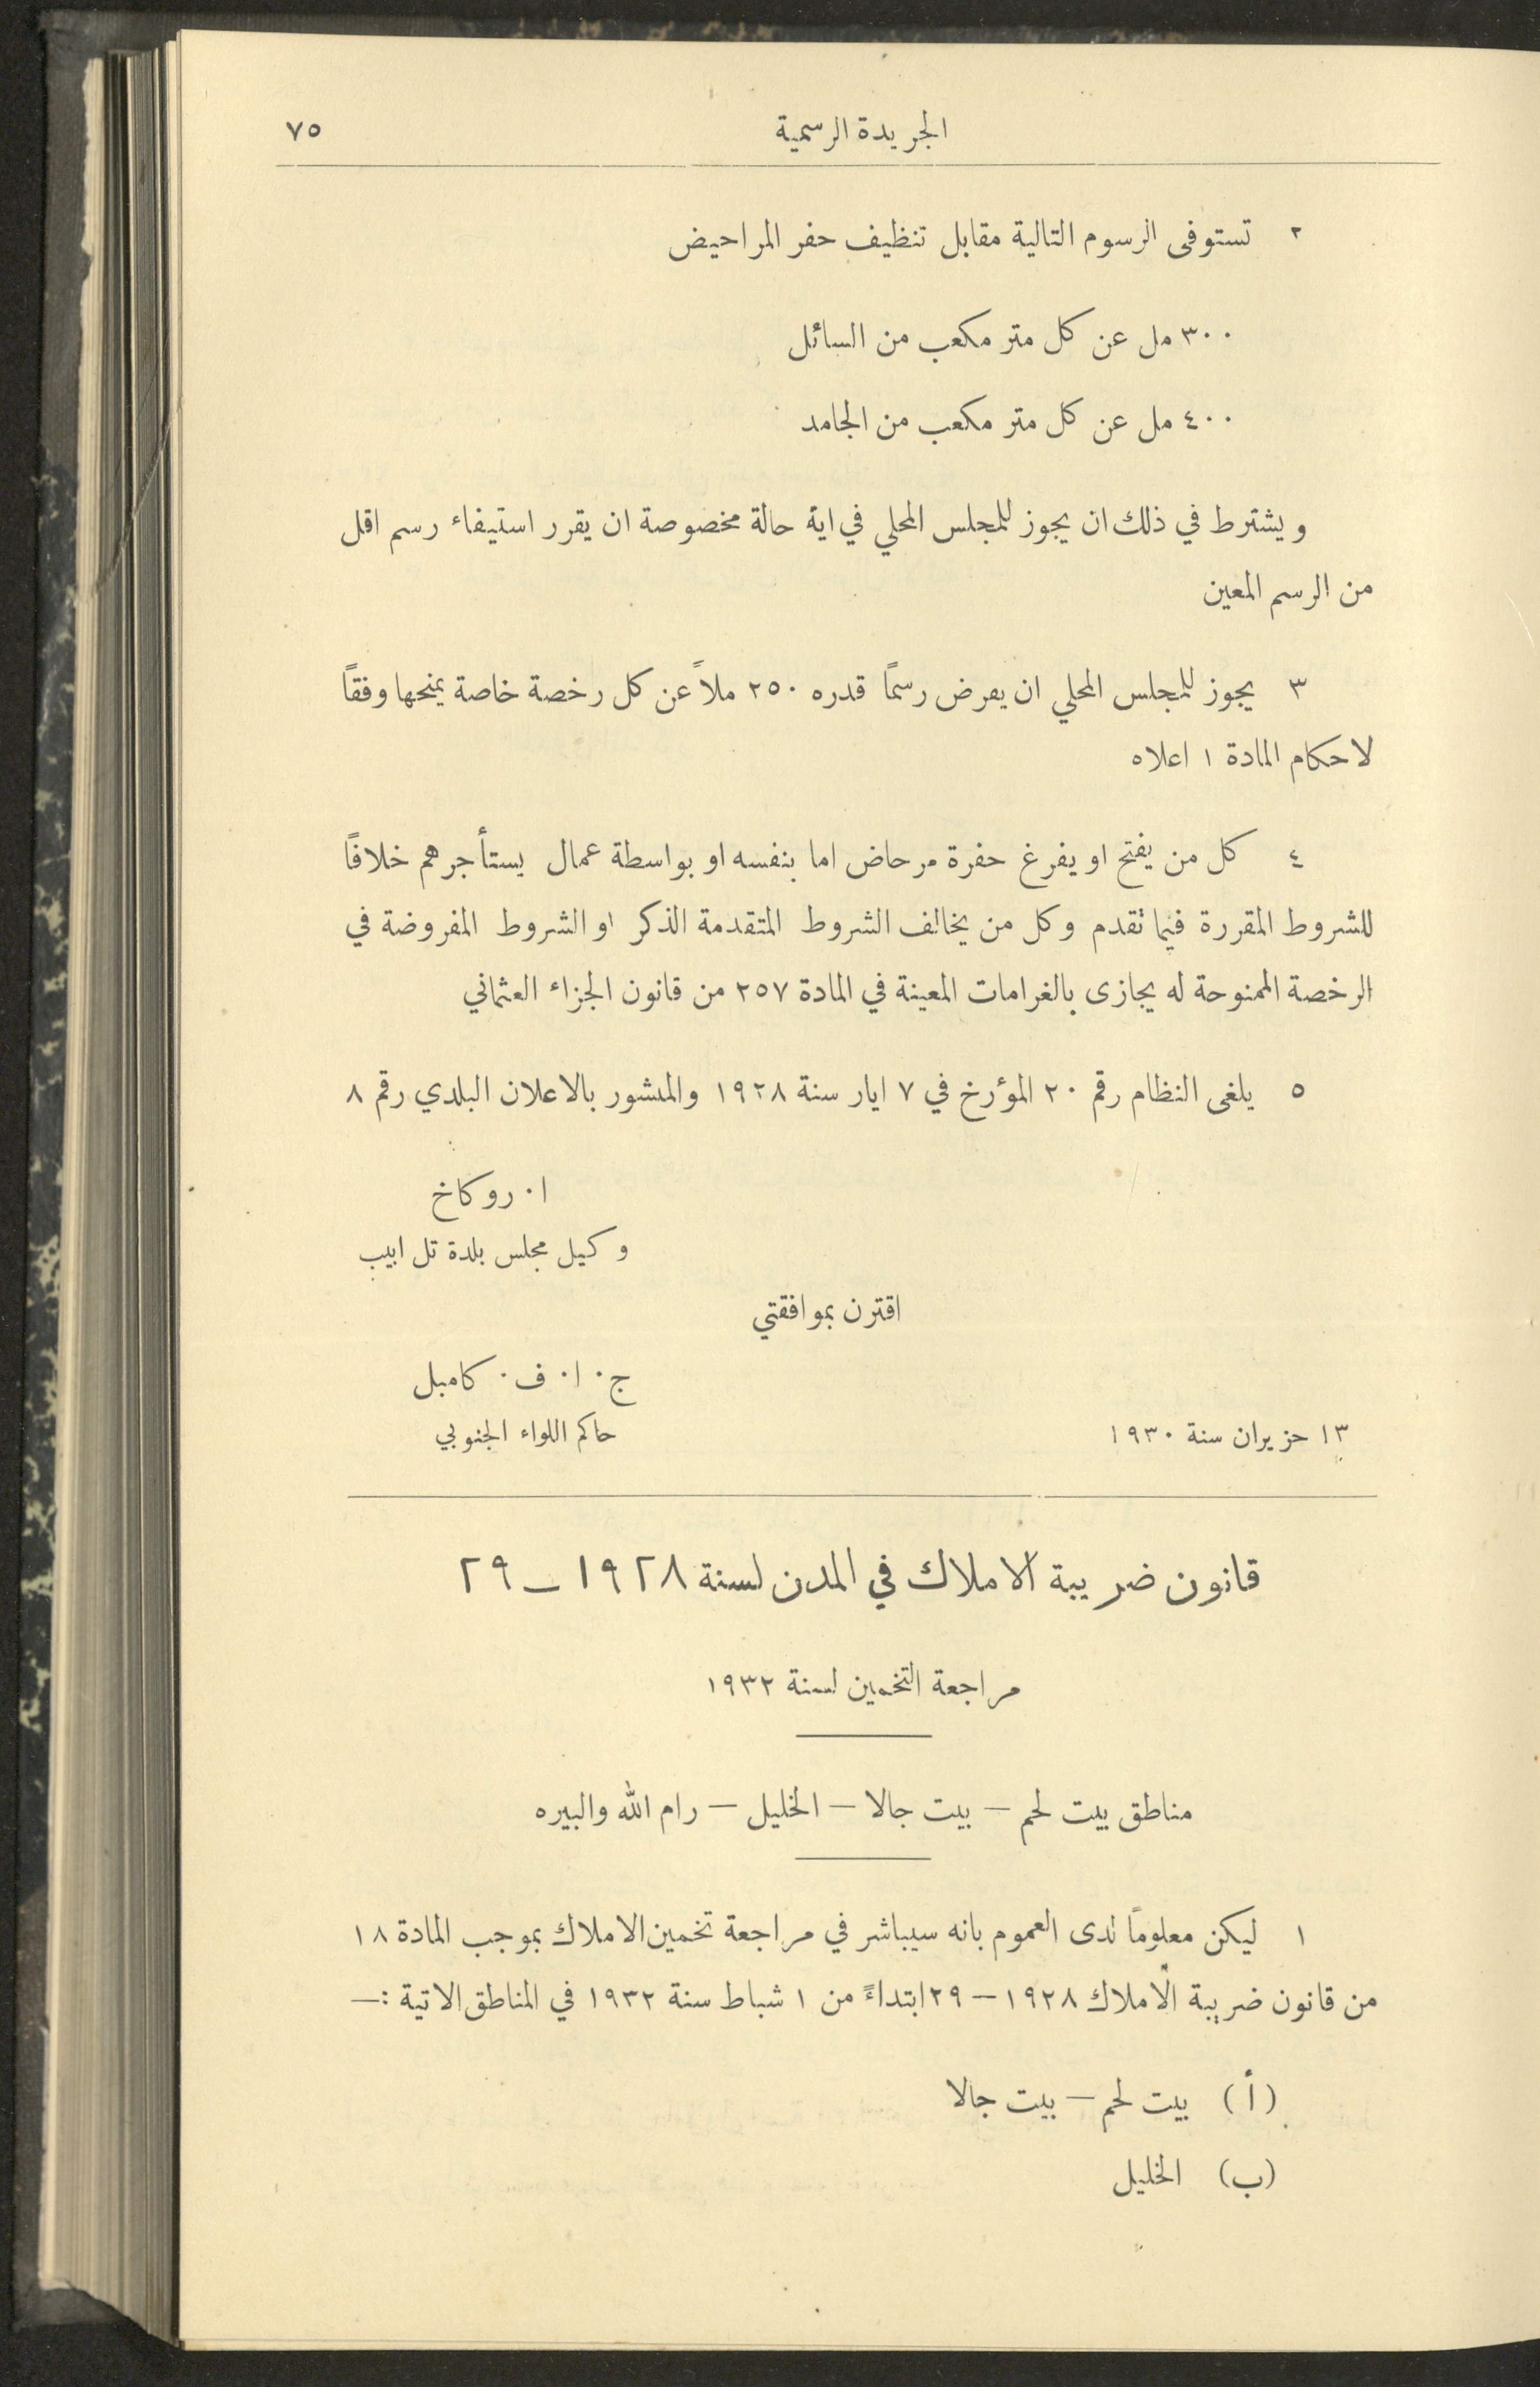 الجريدة الرسمية ٧٥
٢ تستوفى الرسوم التالية مقابل تنظيف حفر المراحيض
٣٠٠ مل عن كل متر مكعب من السائل
٤٠٠ مل عن كل متر مكعب من الجامد
ويشترط في ذلك ان يجوز للمجلس المحلي في اية حالة مخصوصة ان يقرر استيفاء رسم اقل
من الرسم المعين
٣ يجوز للمجلس المحلي ان يفرض رسمًا قدره ٢٥٠ ملاً عن كل رخصة خاصة يمنحها وفقاً
لاحكام المادة ١ اعلاه
٤ كل من يفتح او يفرغ حفرة مرحاض اما بنفسه او بواسطة عمال يستأجرهم خلافاً
للشروط المقررة فيما تقدم وكل من يخالف الشروط المتقدمة الذكر او الشروط المفروضة في
الرخصة الممنوحة له يجازى بالغرامات المعينة في المادة ٢٥٧ من قانون الجزاء العثماني
٥ يلغى النظام رقم ٢٠ المؤرخ في ٧ ايار سنة ١٩٢٨ والمنشور بالاعلان البلدي رقم ٨
ا. روكاخ
وكيل مجلس بلدة تل ابيب
اقترن بموافقتي
ج. ا. ف. كامبل
١٣ حزيران سنة ١٩٣٠ حاكم اللواء الجنوبي
قانون ضريبة الاملاك في المدن لسنة ١٩٢٨ـ٢٩
مراجعة التخمين لسنة ١٩٣٢
مناطق بيت لحم — بيت جالا — الخليل — رام الله والبيره
١ ليكن معلوماً لدى العموم بانه سيباشر في مراجعة تخمين الاملاك بموجب المادة ١٨
من قانون ضريبة الاملاك ١٩٢٨ — ٢٩ ابتداءً من ١ شباط سنة ١٩٣٢ في المناطق الاتية :—
(أ) بيت لحم — بيت جالا
(ب) الخليل